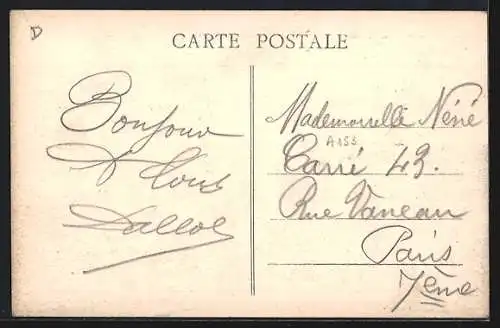 D
CARTE POSTALE
Bonjour
A Tous
Mademoiselle Néné
A 153
Carré 43.
Rue Vaneau
Paris
7ème